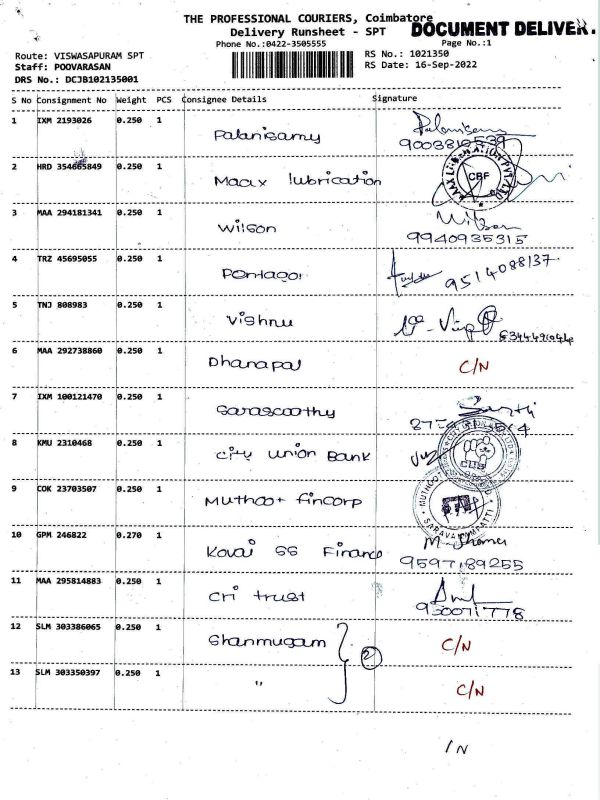 THE PROFESSIONAL COURIERS, Coimbatore
DOCUMENT DELIVER.
Delivery Runsheet - SPT
Phone No.:0422-3505555
Page No.:1
Route: VISWASAPURAM SPT
RS No.: 1021350
Staff: POOVARASAN
RS Date: 16-Sep-2022
DRS No.: DCJB102135001
S No Consignment No Weight PCS Consignee Details Signature
1 IXM 2193026 0.250 1 Palanisamy
2 HRD 354665849 0.250 1 Maax lubrication CBF
3 MAA 294181341 0.250 1 Wilson Wilson
9940935315
4 TRZ 45695055 0.250 1 9514088137
5 TNJ 808983 0.250 1 Vishnu
6 MAA 292738860 0.250 1 Dhanapal C/N
7 IXM 100121470 0.250 1
8 KMU 2310468 0.250 1 City Union Bank CUB
9 COK 23703507 0.250 1 Muthoot Fincorp
10 GPM 246822 0.270 1 Kovai SS Finance
9597189255
11 MAA 295814883 0.250 1 Cri trust
12 SLM 303386065 0.250 1 Shanmugam 2 C/N
13 SLM 303350397 0.250 1 " C/N
/N